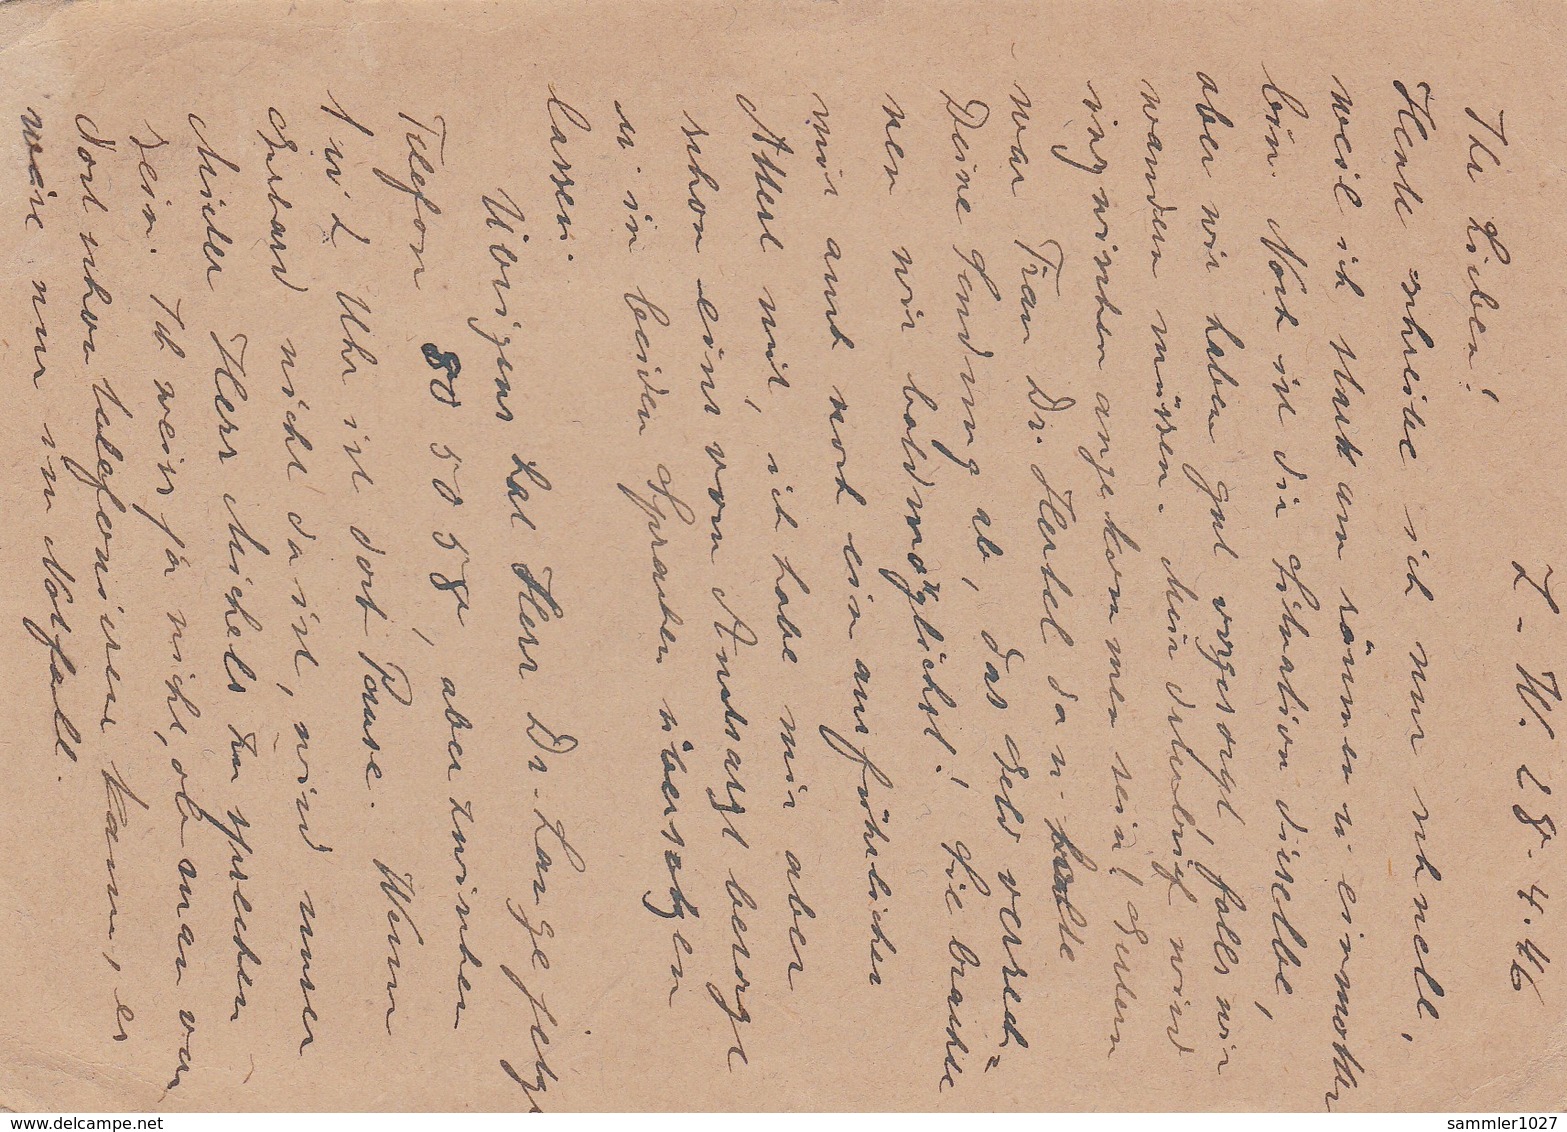 Z-W. 28.4.46
Ihr Lieben!
Heute schreibe ich nur schnell,
weil ich stark am räumen u. einmotten
bin. Noch ist die Situation dieselbe,
aber wir haben gut vorgesorgt, falls wir
wandern müssen. Mein Eilbrief wird
inzwischen angekommen sein! Gestern
war Frau Dr. Hertel da u. holte
Deine Sendung ab, das Geld verrech=
nen wir baldmöglichst! Sie brachte
mir auch noch ein ausführliches
Attest mit, ich habe mir aber
schon eins vom Amtsarzt besorgt
u. in beiden Sprachen übersetzen
lassen.
Übrigens hat Herr Dr. Lange jetzt
Telefon 50 50 58, aber zwischen
1 u. 2 Uhr ist dort Pause. Wenn
Gerhard nicht da ist, wird immer
Mister Herr Michels zu sprechen
sein. Ich weiss ja nicht, ob man von
dort schon telefonieren kann, es
wäre nur im Notfall.
sammler1027
delcampe.net